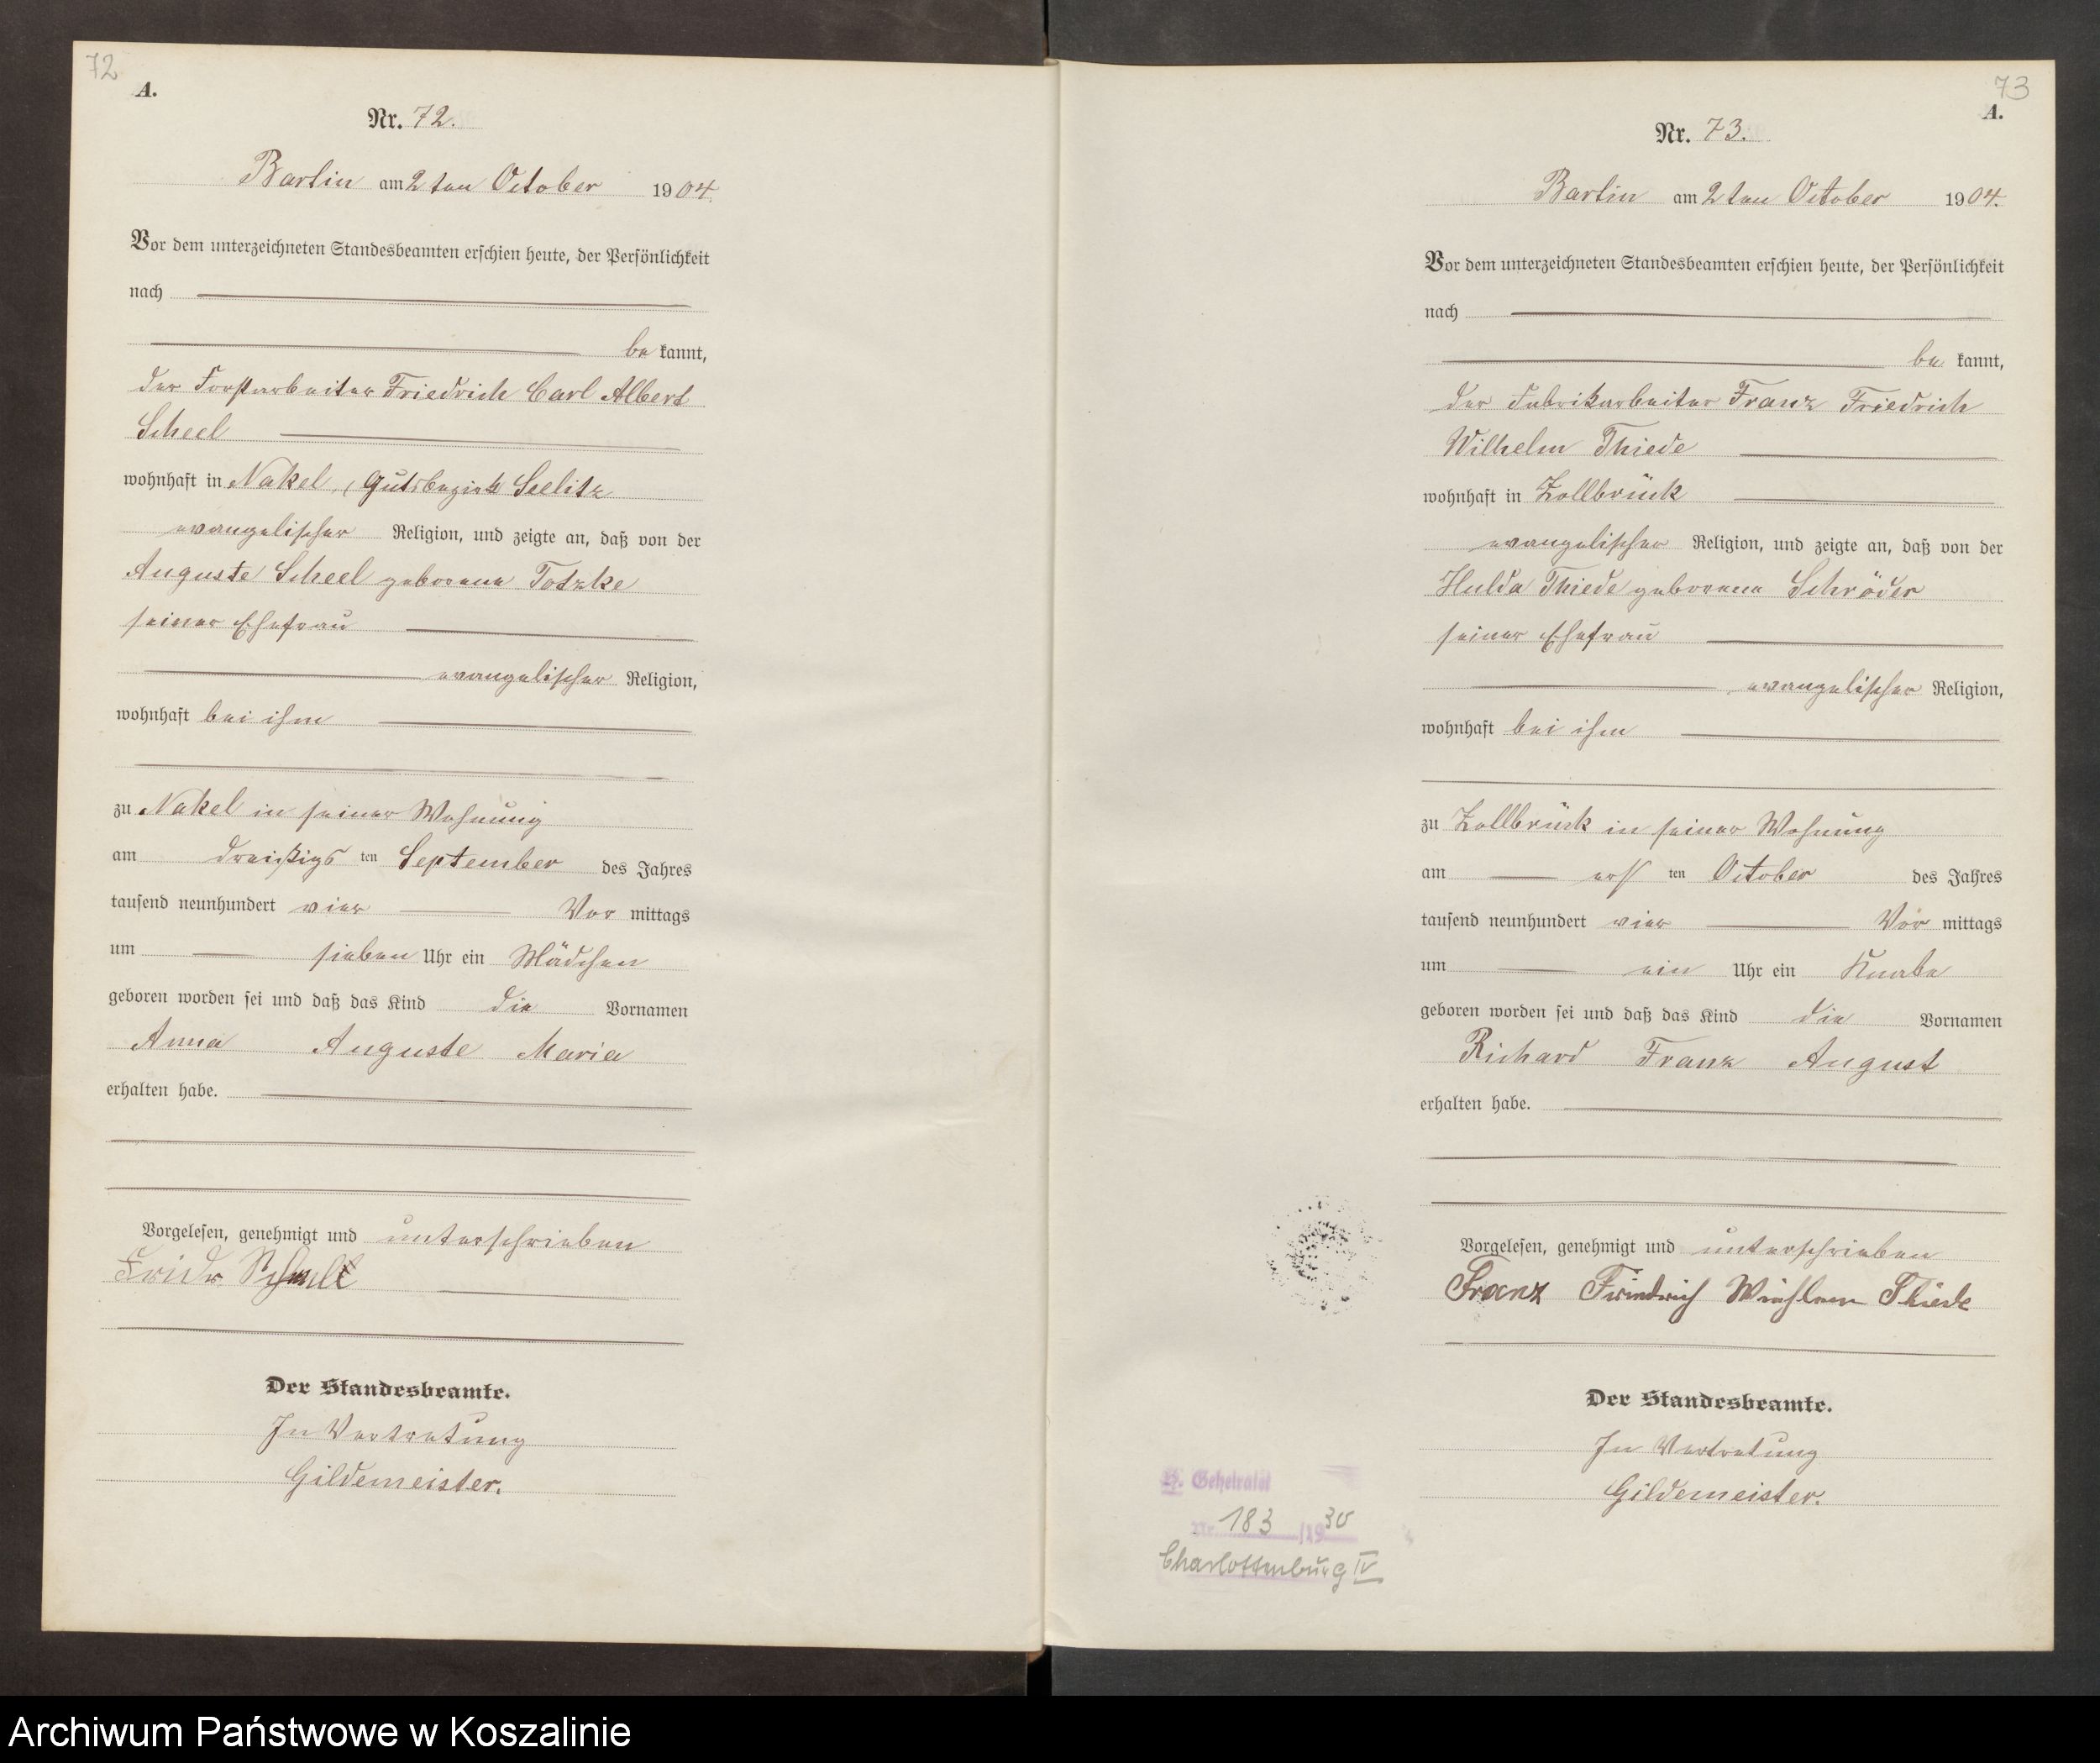 72
A.
Nr. 72.
Bartin am 2ten October 1904.
Vor dem unterzeichneten Standesbeamten erschien heute, der Persönlichkeit
nach
bekannt,
der Forstarbeiter Friedrich Carl Albert
Scheel
wohnhaft in Nakel, Gutsbezirk Seelitz
evangelischer Religion, und zeigte an, daß von der
Auguste Scheel geborene Totzke
seiner Ehefrau
evangelischer Religion,
wohnhaft bei ihm
zu Nakel in seiner Wohnung
am dreißigsten September des Jahres
tausend neunhundert vier Vormittags
um sieben Uhr ein Mädchen
geboren worden sei und daß das Kind die Vornamen
Anna Auguste Maria
erhalten habe.
Vorgelesen, genehmigt und unterschrieben
Der Standesbeamte.
In Vertretung
Gildemeister.
73
A.
Nr. 73.
Bartin am 2ten October 1904.
Vor dem unterzeichneten Standesbeamten erschien heute, der Persönlichkeit
nach
bekannt,
der Fabrikarbeiter Franz Friedrich
Wilhelm Thiede
wohnhaft in Zollbrück
evangelischer Religion, und zeigte an, daß von der
Hulda Thiede geborene Schröder
seiner Ehefrau
evangelischer Religion,
wohnhaft bei ihm
zu Zollbrück in seiner Wohnung
am ersten October des Jahres
tausend neunhundert vier Vormittags
um ein Uhr ein Knabe
geboren worden sei und daß das Kind die Vornamen
Richard Franz August
erhalten habe.
Vorgelesen, genehmigt und unterschrieben
Franz Friedrich Thiede
Der Standesbeamte.
In Vertretung
Gildemeister.
Geheiratet
Nr. 183 /1930
Charlottenburg IV
Archiwum Państwowe w Koszalinie